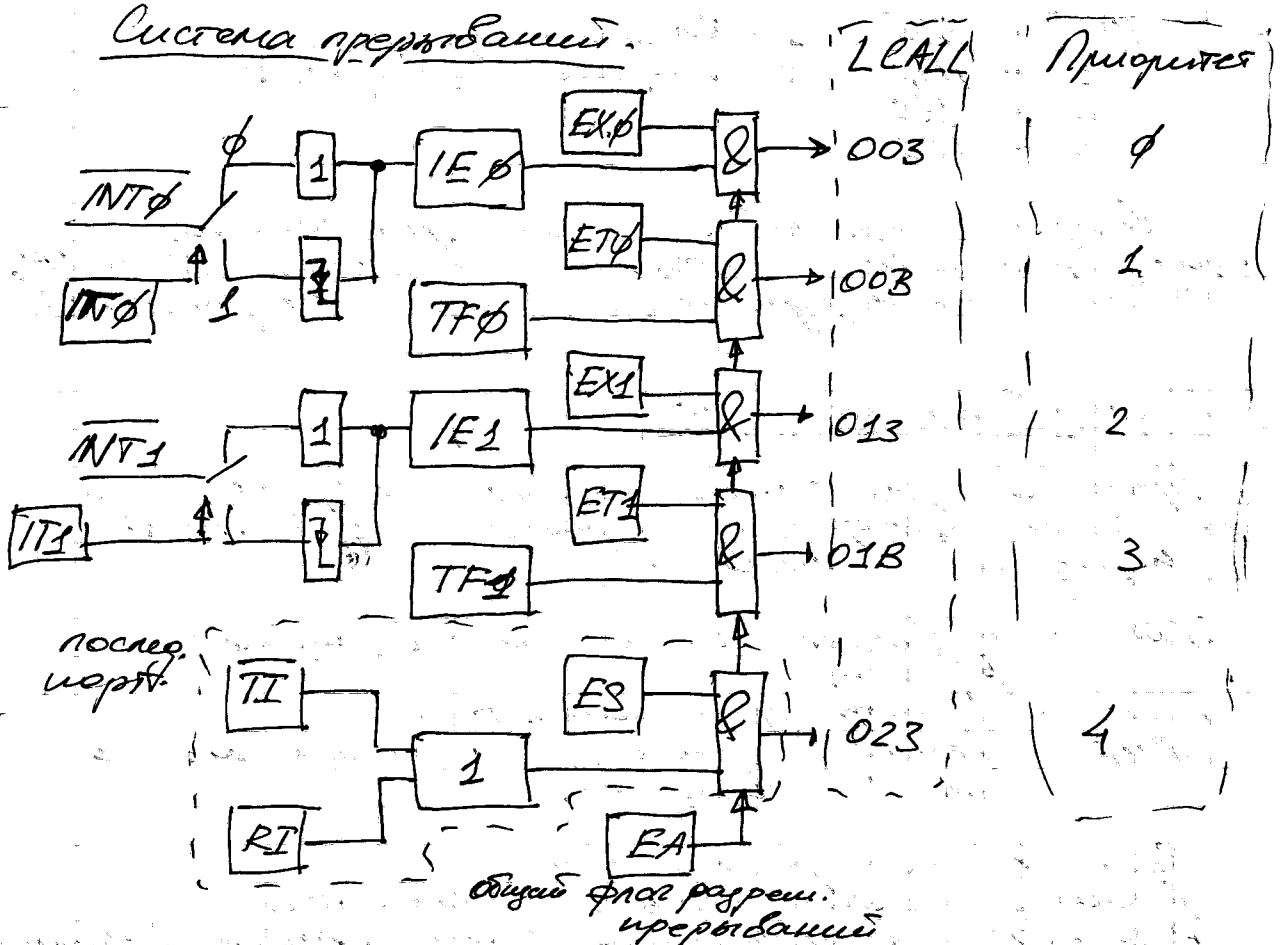 Система прерываний.
LCALL
Приоритет
INTφ
φ
1
IEφ
EX.φ
&
003
φ
ITφ
1
ETφ
TFφ
&
00B
1
INT1
1
IE1
EX1
&
013
2
IT1
ET1
TF1
&
01B
3
послед.
порт.
TI
ES
&
023
4
1
RI
EA
общий флаг разреш.
прерываний